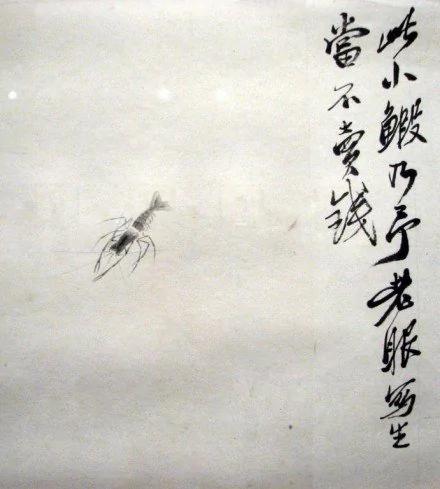 此小鰕乃予老眼寫生
當不賣錢